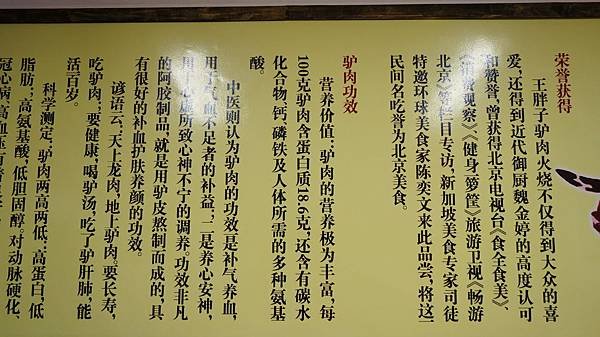 荣誉获得
王胖子驴肉火烧不仅得到大众的喜
爱,还得到近代御厨魏金婷的高度认可
和赞誉,曾获得北京电视台《食全食美》、
《消费观察》、《健身箩筐》旅游卫视《畅游
北京》等栏目专访,新加坡美食专家司徒
特邀环球美食家陈奕文来此品尝,将这一
民间名吃誉为北京美食。
驴肉功效
营养价值:驴肉的营养极为丰富,每
100克驴肉含蛋白质18.6克,还含有碳水
化合物、钙、磷铁及人体所需的多种氨基
酸。
中医则认为驴肉的功效一是补气养血,
用于气血不足者的补益,二是养心安神,
用于心虚所致心神不宁的调养。功效非凡
的阿胶制品,就是用驴皮熬制而成的,具
有很好的补血护肤养颜的功效。
谚语云:天上龙肉,地上驴肉。要长寿,
吃驴肉;要健康、喝驴汤,吃了驴肝肺,能
活百岁。
科学测定:驴肉两高两低:高蛋白,低
脂肪;高氨基酸,低胆固醇。对动脉硬化、
冠心病、高血压有着